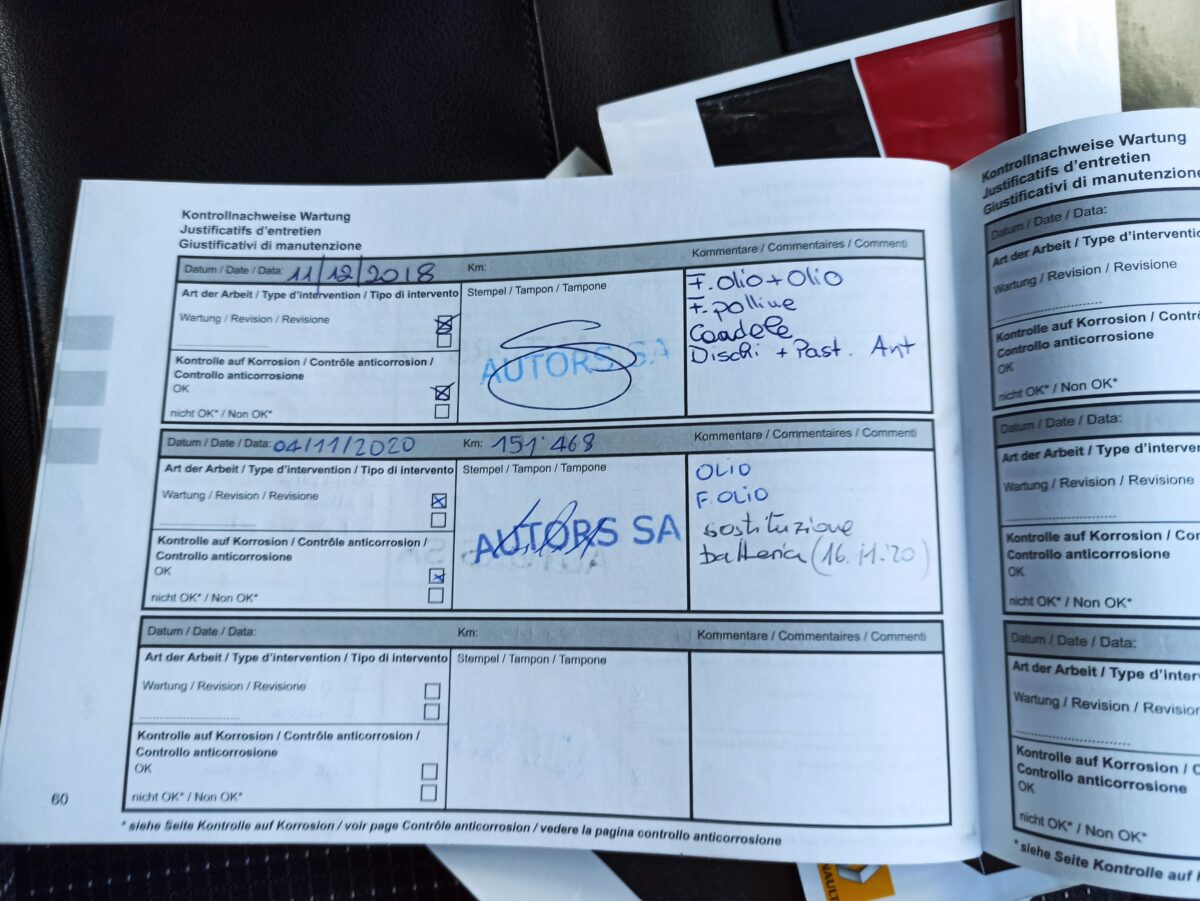 Kontrollnachweise Wartung
Justificatifs d'entretien
Giustificativi di manutenzione
Datum / Date / Data: 11/12/2018 Km: Kommentare / Commentaires / Commenti
Art der Arbeit / Type d'intervention / Tipo di intervento
Wartung / Revision / Revisione
Kontrolle auf Korrosion / Contrôle anticorrosion /
Controllo anticorrosione
OK
nicht OK* / Non OK*
Stempel / Tampon / Tampone
AUTORS SA
F. Olio + Olio
F. polline
Candele
Dischi + Past. Ant
Datum / Date / Data: 04/11/2020 Km: 151'468 Kommentare / Commentaires / Commenti
Art der Arbeit / Type d'intervention / Tipo di intervento
Wartung / Revision / Revisione
Kontrolle auf Korrosion / Contrôle anticorrosion /
Controllo anticorrosione
OK
nicht OK* / Non OK*
Stempel / Tampon / Tampone
AUTORS SA
OLIO
F. OLIO
sostituzione
batteria (16.11.20)
Datum / Date / Data: Km: Kommentare / Commentaires / Commenti
Art der Arbeit / Type d'intervention / Tipo di intervento
Wartung / Revision / Revisione
Kontrolle auf Korrosion / Contrôle anticorrosion /
Controllo anticorrosione
OK
nicht OK* / Non OK*
Stempel / Tampon / Tampone
60
* siehe Seite Kontrolle auf Korrosion / voir page Contrôle anticorrosion / vedere la pagina controllo anticorrosione
Kontrollnachweise Wartung
Justificatifs d'entretien
Giustificativi di manutenzione
Datum / Date / Data:
Art der Arbeit / Type d'interventi
Wartung / Revision / Revisione
Kontrolle auf Korrosion / Contrô
Controllo anticorrosione
OK
nicht OK* / Non OK*
Datum / Date / Data:
Art der Arbeit / Type d'interven
Wartung / Revision / Revisione
Kontrolle auf Korrosion / Con
Controllo anticorrosione
OK
nicht OK* / Non OK*
Datum / Date / Data:
Art der Arbeit / Type d'inter
Wartung / Revision / Revision
Kontrolle auf Korrosion / C
Controllo anticorrosione
OK
nicht OK* / Non OK*
* siehe Seite Kontrolle auf K
NAULT